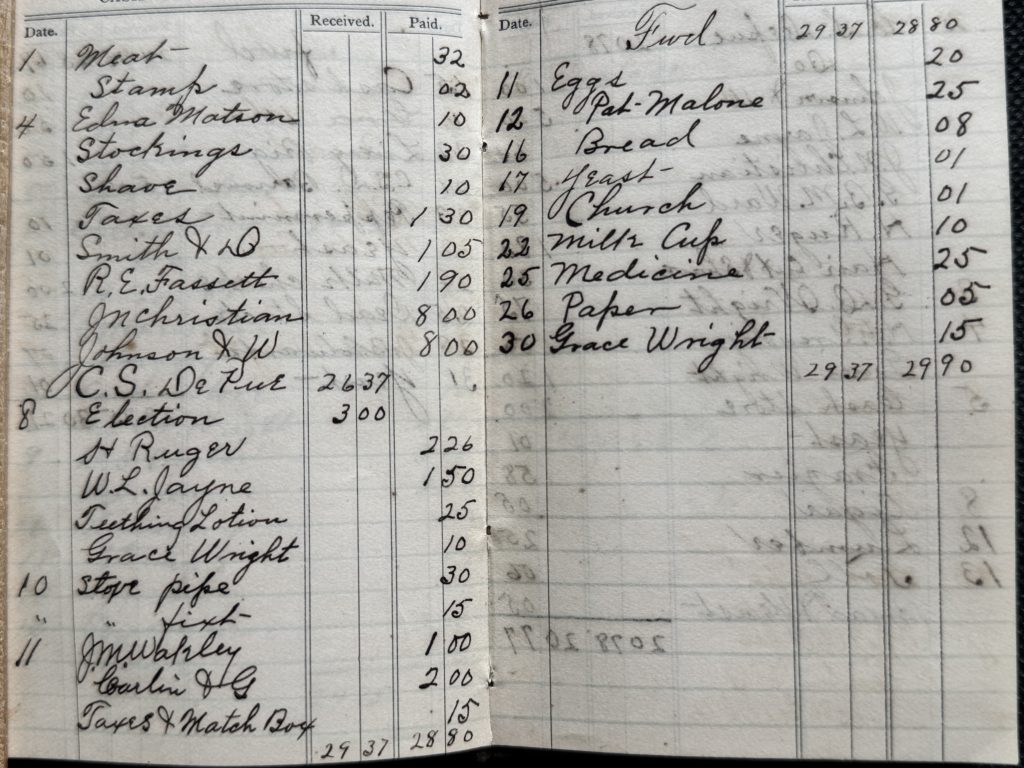 Date. Received. Paid.
1 Meat 32
Stamp 02
4 Edna Matson 10
Stockings 30
Shave 10
Taxes 1 30
Smith & D 1 05
R.E. Fassett 1 90
J N Christian 8 00
Johnson & W 8 00
C.S. De Pue 26 37
8 Election 3 00
H Ruger 2 26
W.L. Jayne 1 50
Teething Lotion 25
Grace Wright 10
10 Stove pipe 30
" " fixt 15
11 J.M. Wakley 1 00
Carlin & G 2 00
Taxes & Match Box 15
29 37 28 80
Date. Fwd 29 37 28 80
11 Eggs 20
12 Pat Malone 25
16 Bread 08
17 Yeast 01
19 Church 01
22 Milk Cup 10
25 Medicine 25
26 Paper 05
30 Grace Wright 15
29 37 29 90